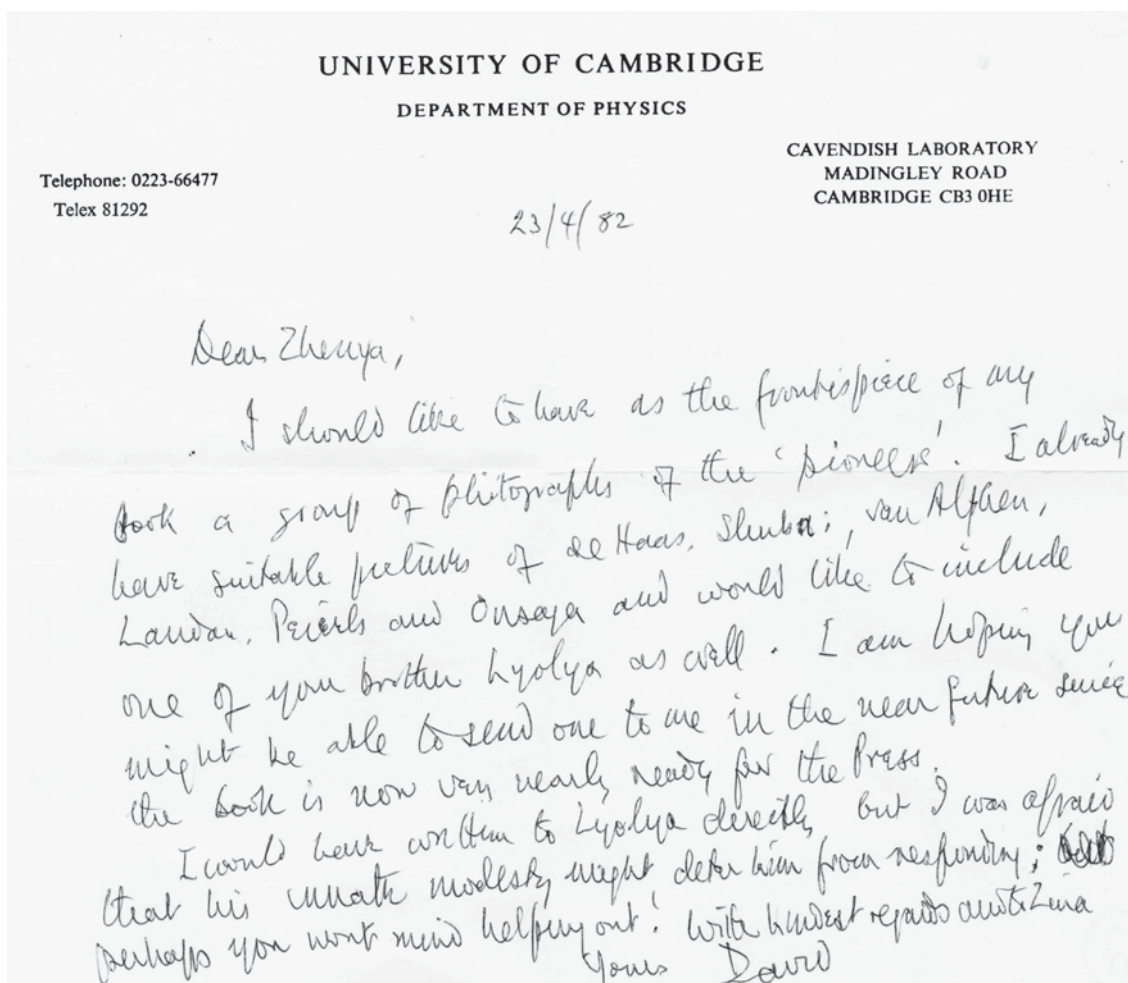 UNIVERSITY OF CAMBRIDGE
DEPARTMENT OF PHYSICS
CAVENDISH LABORATORY
MADINGLEY ROAD
CAMBRIDGE CB3 0HE
Telephone: 0223-66477
Telex 81292
23/4/82
Dear Zhenya,
I should like to have as the frontispiece of my
book a group of photographs of the 'pioneers'. I already
have suitable pictures of de Haas, Shubni, van Alphen,
Landau, Peierls and Onsager and would like to include
one of your brother Lyolya as well. I am hoping you
might be able to send one to me in the near future since
the book is now very nearly ready for the Press.
I could have written to Lyolya directly, but I was afraid
that his innate modesty might deter him from responding;
perhaps you wont mind helping out! With kindest regards Zina
Yours David